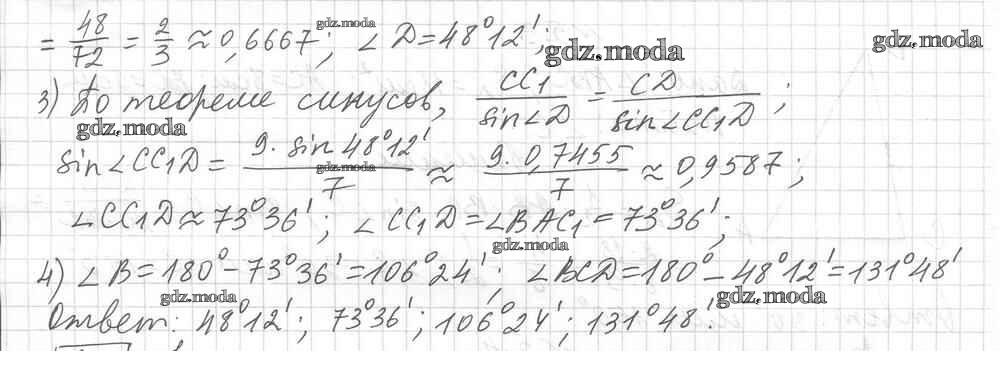 = 48/72 = 2/3 ≈ 0,6667; ∠D = 48°12';
3) По теореме синусов, CC1/sin∠D = CD/sin∠CC1D ;
sin∠CC1D = 9·sin48°12'/7 ≈ 9·0,7455/7 ≈ 0,9587;
∠CC1D ≈ 73°36'; ∠CC1D = ∠BAC1 = 73°36';
4) ∠B = 180° – 73°36' = 106°24'; ∠BCD = 180° – 48°12' = 131°48'
Ответ: 48°12'; 73°36'; 106°24'; 131°48'.
gdz.moda
gdz.moda
gdz.moda
gdz.moda
gdz.moda
gdz.moda
gdz.moda
gdz.moda